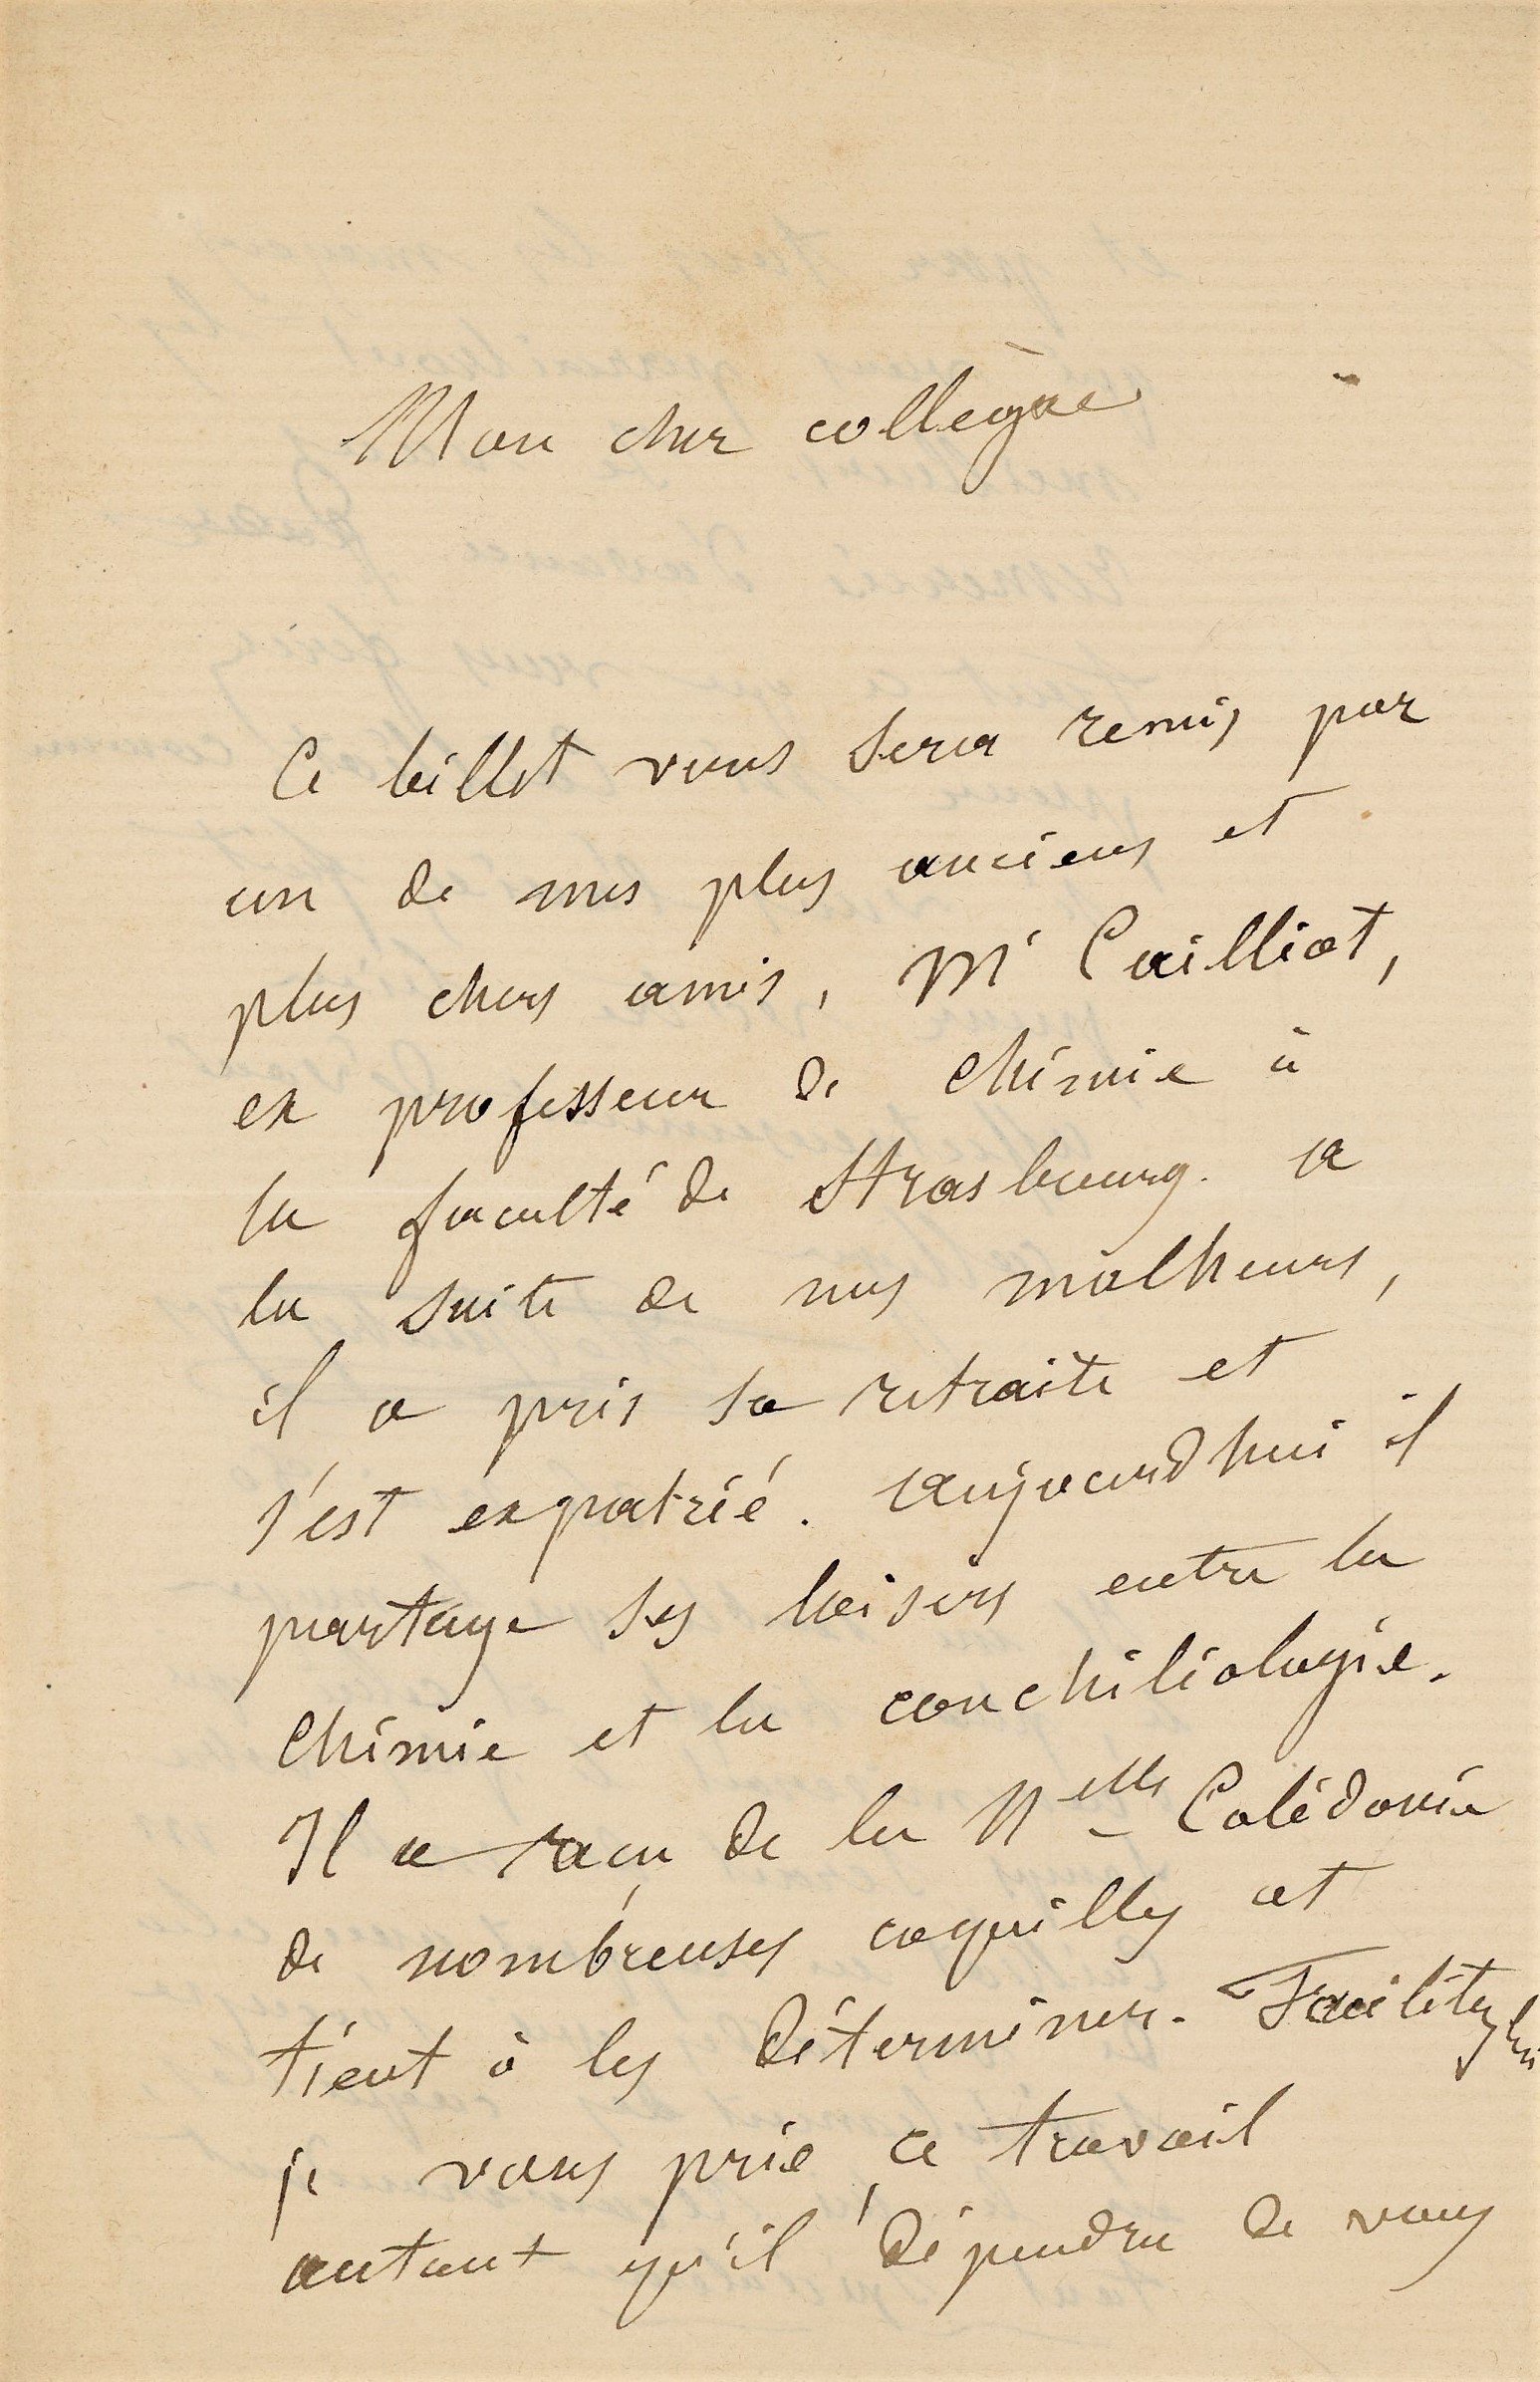 Mon cher collègue
Ce billet vous sera remis par
un de mes plus anciens et
plus chers amis, Mr Cailliot,
ex professeur de chimie à
la faculté de Strasbourg. a
la suite de nos malheurs,
il a pris sa retraite et
s'est expatrié. aujourd'hui il
partage ses loisirs entre la
chimie et la conchiliologie.
Il a reçu de la Nelle Calédonie
de nombreuses coquilles et
tient à les déterminer. Facilitez lui
je vous prie, ce travail
autant qu'il dépendra de vous